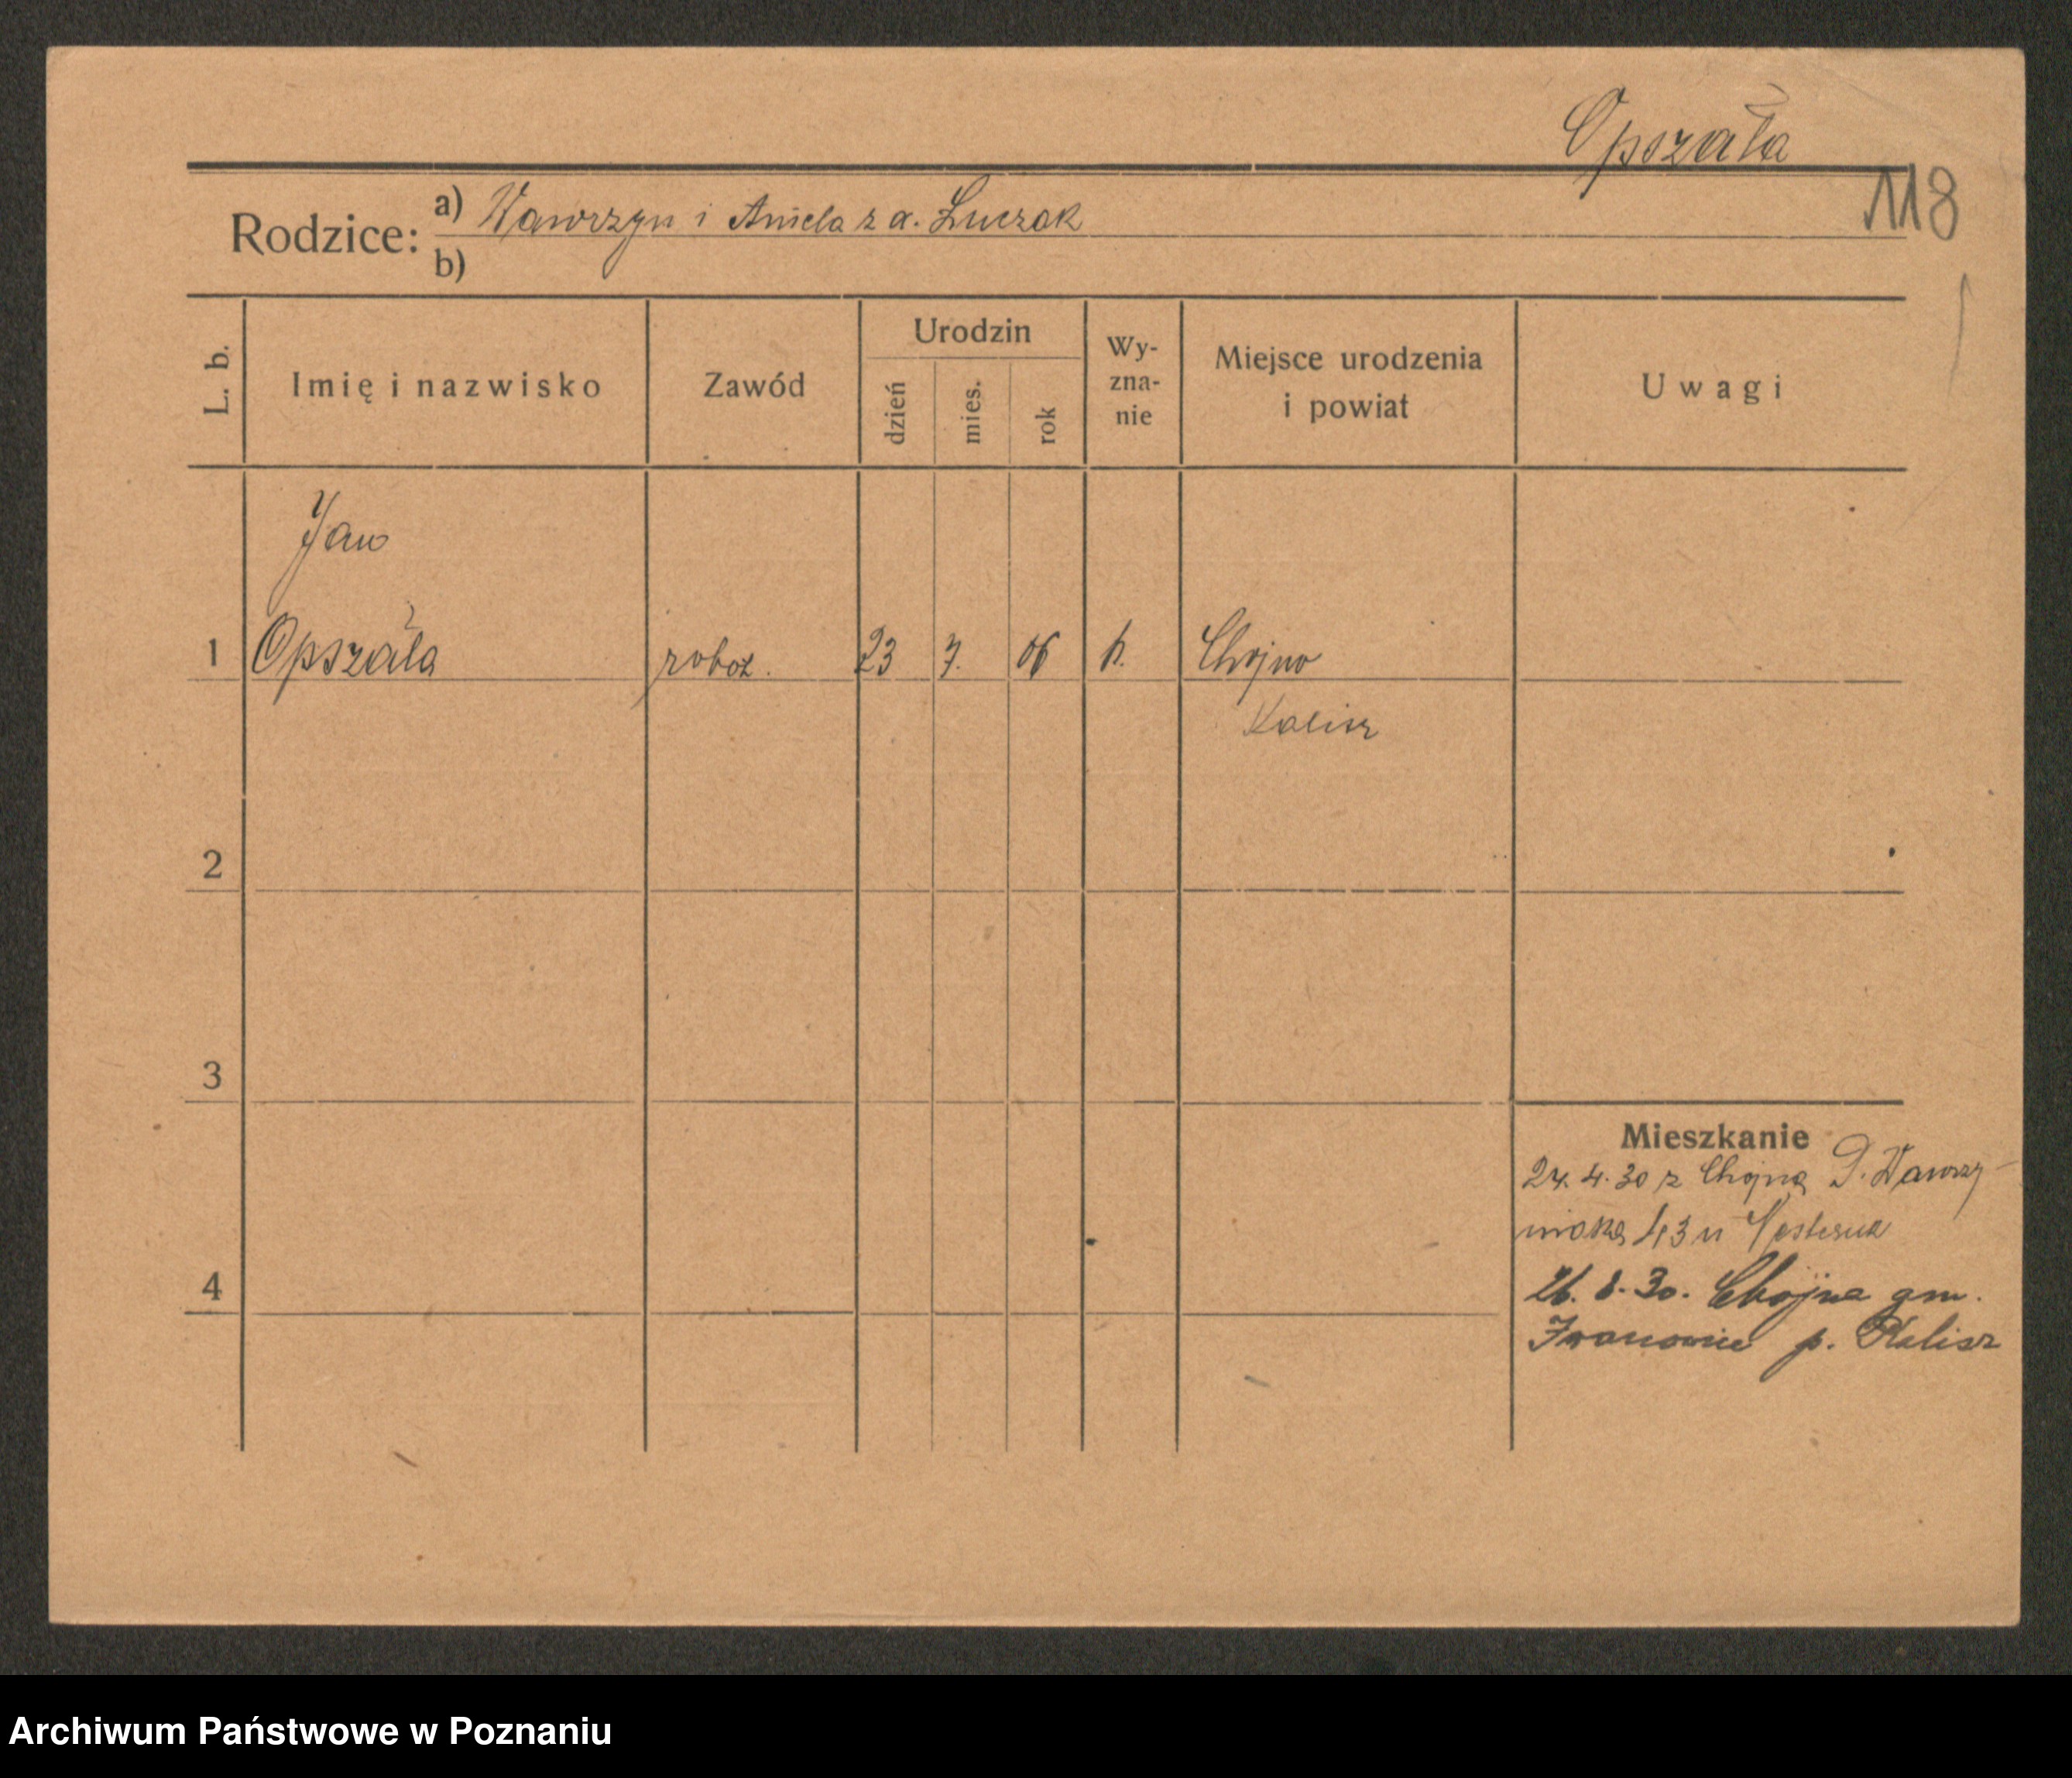 Opszała
118
Rodzice: a) Wawrzyn i Aniela z d. Łuczak
b)
L. b.
Imię i nazwisko
Zawód
Urodzin
dzień
mies.
rok
Wy-
zna-
nie
Miejsce urodzenia
i powiat
Uwagi
Jan
1 Opszała robot. 23 7. 06 k. Chojno
Kalisz
2
3
Mieszkanie
4.30 z Chojna D. Wawrzy-
niaka 43 u
4
26. 8. 30. Chojna gm.
Iwanowice p. Kalisz
Archiwum Państwowe w Poznaniu